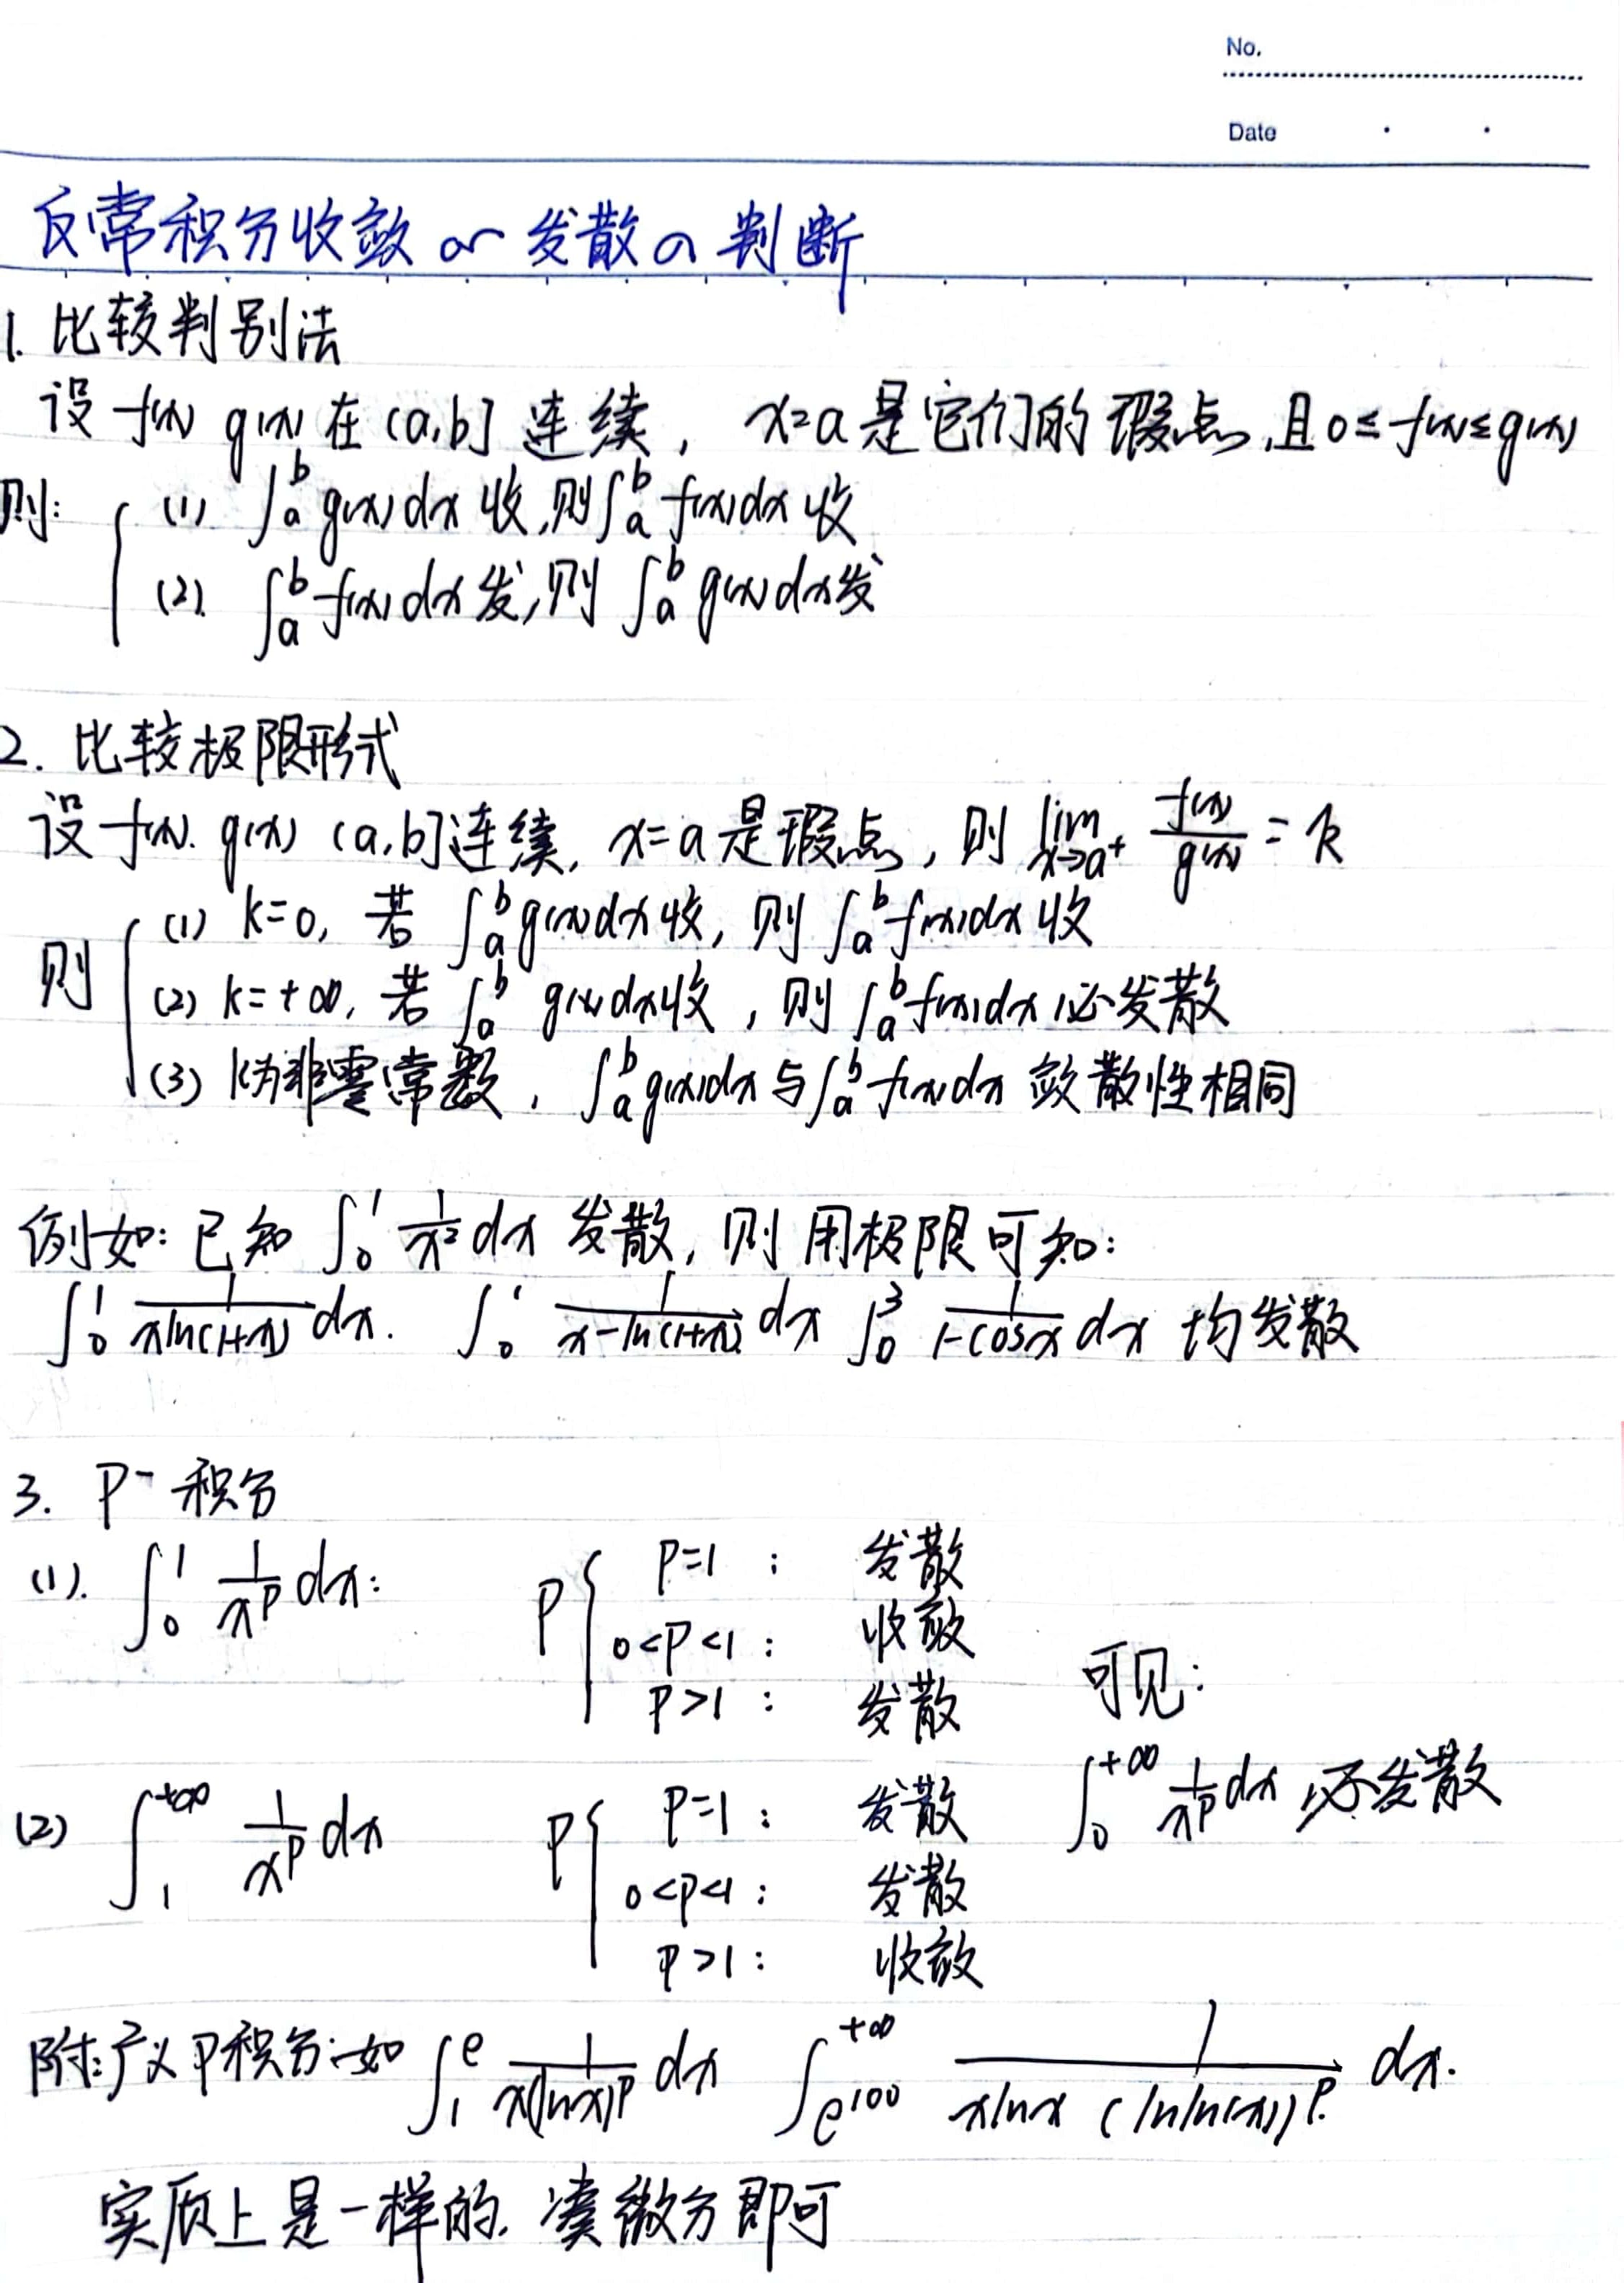 No.
Date
反常积分收敛 or 发散の判断
1. 比较判别法
设 f(x) g(x) 在 (a,b] 连续, x=a 是它们的瑕点,且 0≤f(x)≤g(x)
则:
(1) ∫_a^b g(x)dx 收,则 ∫_a^b f(x)dx 收
(2). ∫_a^b f(x)dx 发,则 ∫_a^b g(x)dx 发
2. 比较极限形式
设 f(x). g(x) (a,b] 连续, x=a 是瑕点, 则 lim_{x→a⁺} f(x)/g(x) = k
则
(1) k=0, 若 ∫_a^b g(x)dx 收, 则 ∫_a^b f(x)dx 收
(2) k=+∞, 若 ∫_a^b g(x)dx 收, 则 ∫_a^b f(x)dx 必发散
(3) k为非零常数, ∫_a^b g(x)dx 与 ∫_a^b f(x)dx 敛散性相同
例如: 已知 ∫_0^1 1/x² dx 发散, 则用极限可知:
∫_0^1 1/(xln(1+x)) dx. ∫_0^1 1/(x-ln(1+x)) dx ∫_0^3 1/(1-cosx) dx 均发散
3. P-积分
(1). ∫_0^1 1/x^p dx: P{ P=1 : 发散
0<P<1 : 收敛
P>1 : 发散
可见:
∫_0^{+∞} 1/x^p dx 必发散
(2) ∫_1^{+∞} 1/x^p dx P{ P=1 : 发散
0<P<1 : 发散
P>1 : 收敛
附:广义P积分:如 ∫_1^e 1/(x(lnx)^p) dx ∫_{e^100}^{+∞} 1/(xlnx (lnln(x))^p) dx.
实质上是一样的. 凑微分即可